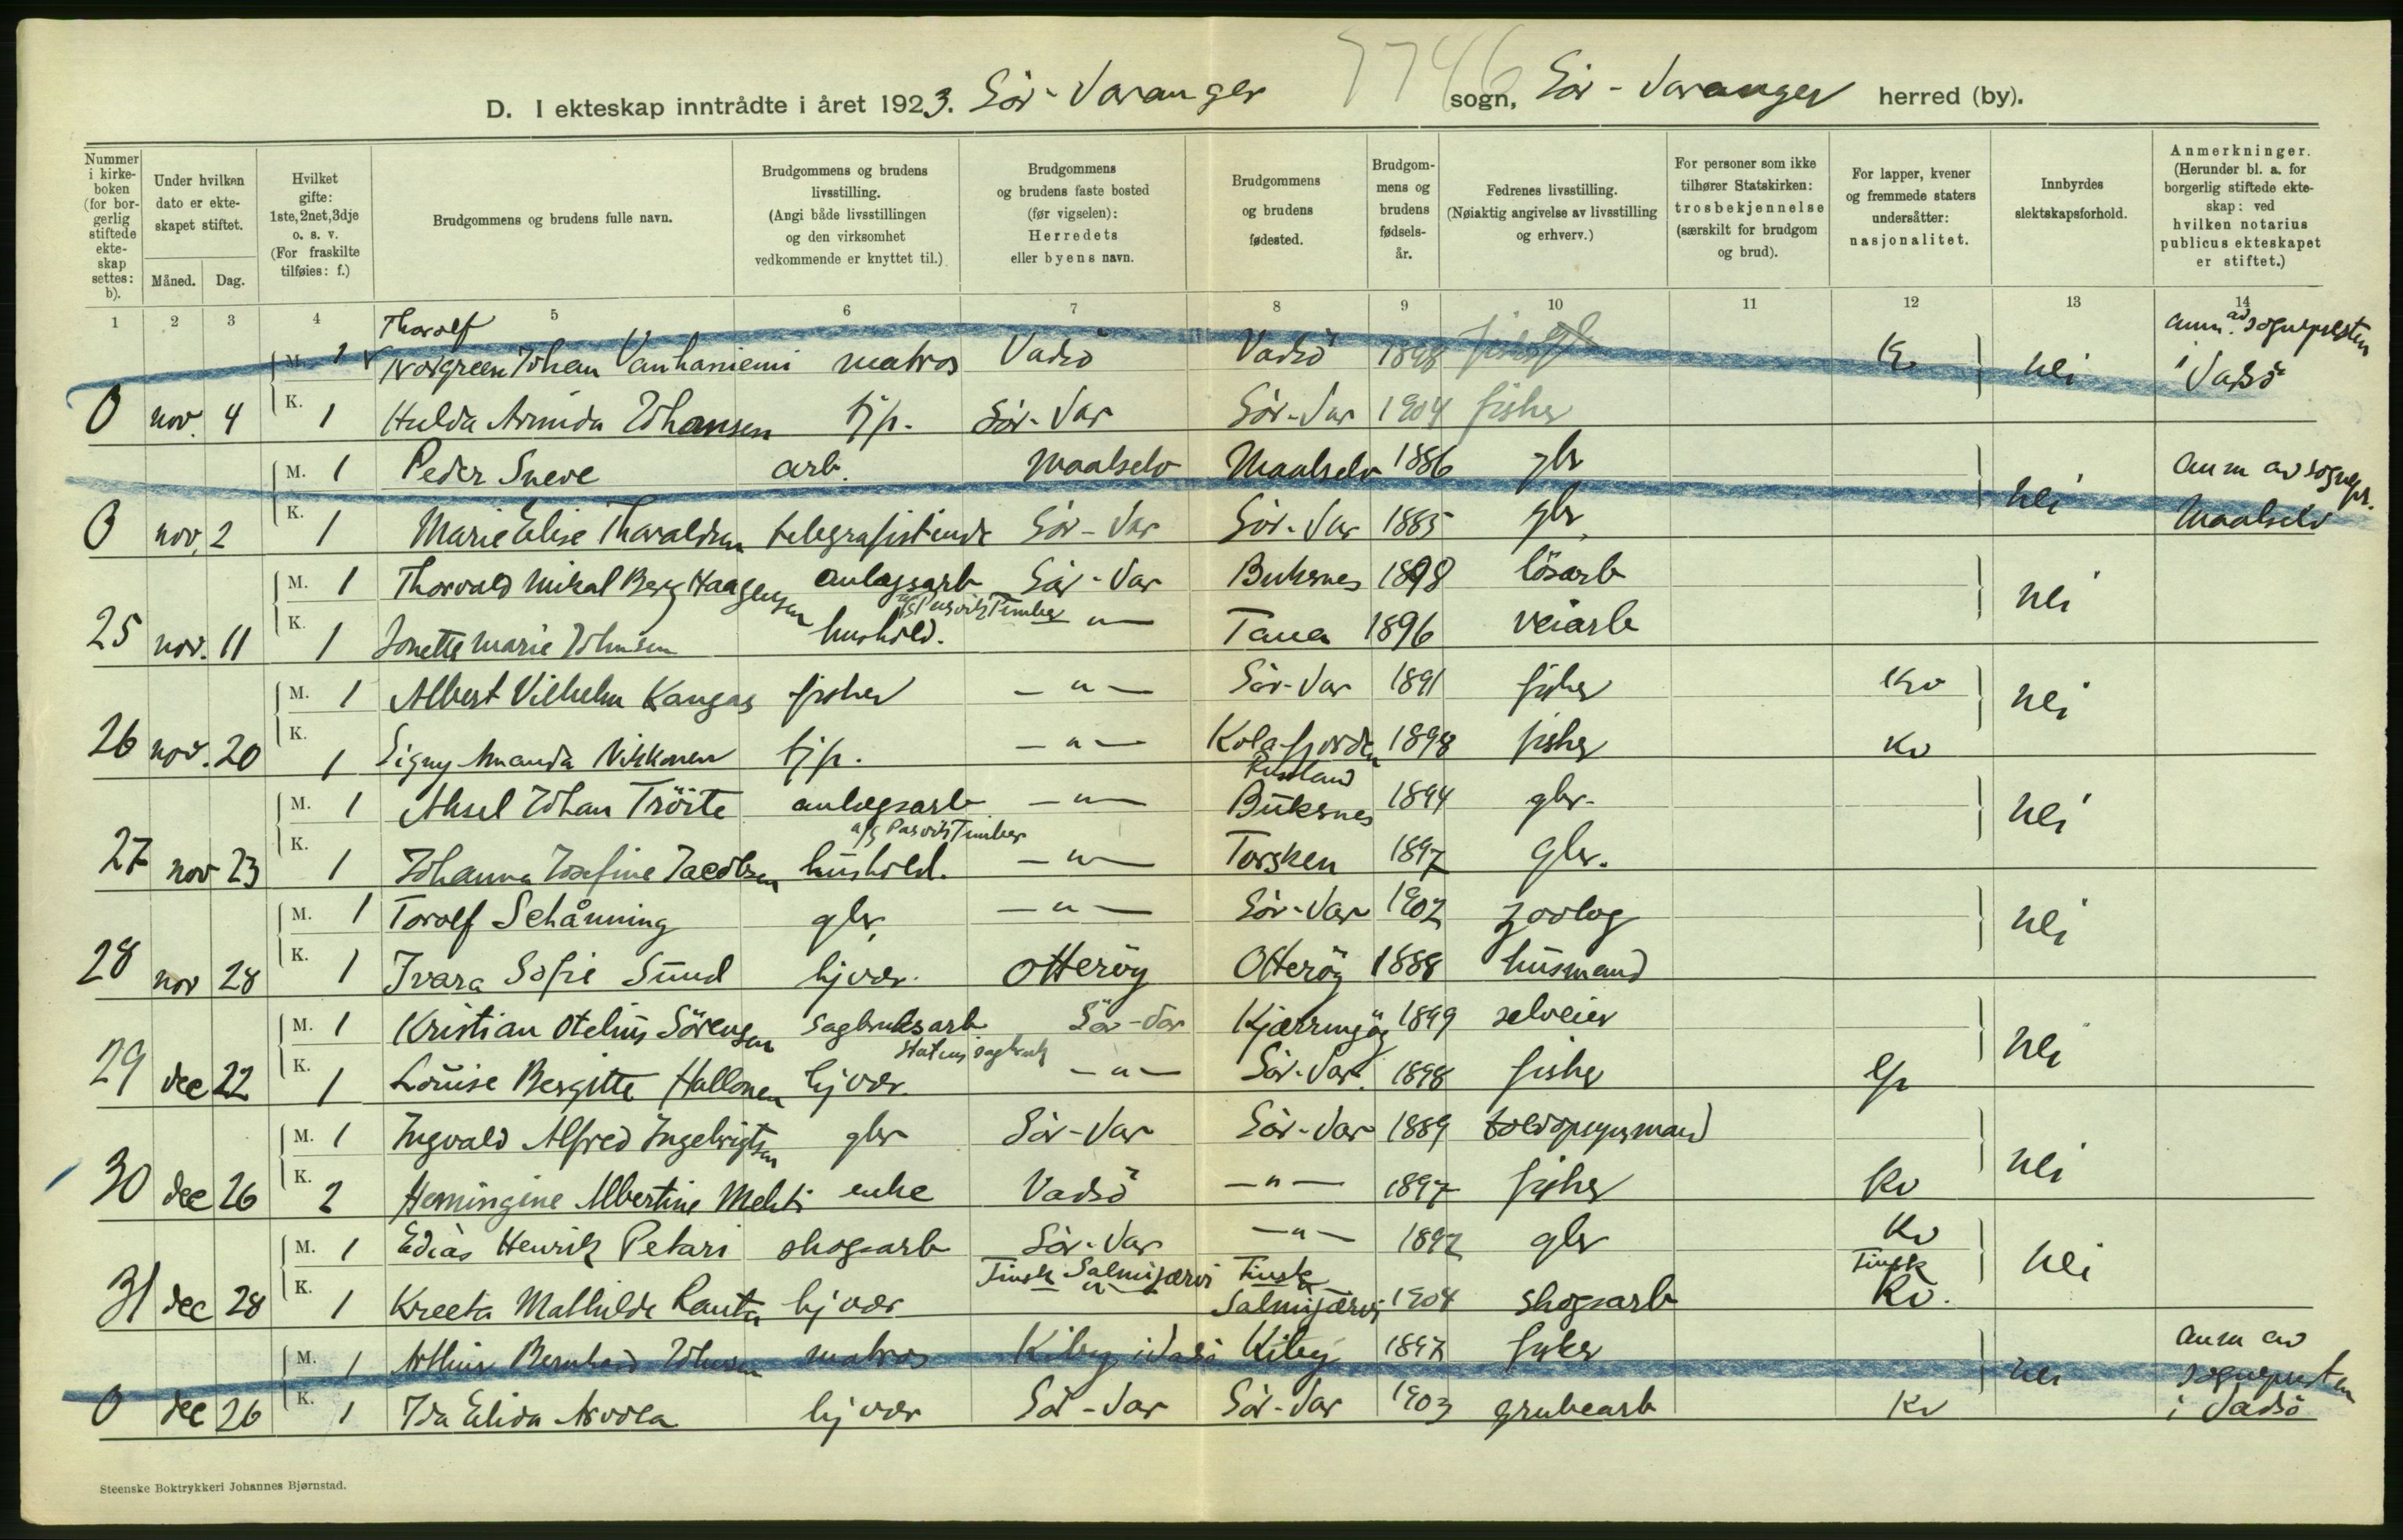 7746
D. I ekteskap inntrådte i året 1923. Sör-Varanger sogn, Sör-Varanger herred (by).
Nummer i kirkeboken (for borgerlig stiftede ekteskap settes: b).
Under hvilken dato er ekteskapet stiftet.
Måned. Dag.
Hvilket gifte: 1ste, 2net, 3dje o. s. v. (For fraskilte tilføies: f.)
Brudgommens og brudens fulle navn.
Brudgommens og brudens livsstilling. (Angi både livsstillingen og den virksomhet vedkommende er knyttet til.)
Brudgommens og brudens faste bosted (før vigselen): Herredets eller byens navn.
Brudgommens og brudens fødested.
Brudgommens og brudens fødselsår.
Fedrenes livsstilling. (Nøiaktig angivelse av livsstilling og erhverv.)
For personer som ikke tilhører Statskirken: trosbekjennelse (særskilt for brudgom og brud).
For lapper, kvener og fremmede staters undersåtter: nasjonalitet.
Innbyrdes slektskapsforhold.
Anmerkninger. (Herunder bl. a. for borgerlig stiftede ekteskap: ved hvilken notarius publicus ekteskapet er stiftet.)
1 2 3 4 5 6 7 8 9 10 11 12 13 14
Thorolf
M. 1 Norgreen Johan Vanhaniemi matros Vadsö Vadsö 1898 nei anm. av sognepresten i Vadsö
0 nov. 4 K. 1 Hulda Arminda Johansen tjp. Sör-Var Sör-Var 1904 fisker
M. 1 Peder Sneve arb. Maalselv Maalselv 1886 gbr nei anm av sognepr. Maalselv
0 nov. 2 K. 1 Marie Elise Tharaldsen telegrafistinde Sör-Var Sör-Var 1885 gbr.
M. 1 Thorvald Mikal Berg Haagensen anlagsarb Sör-Var Buksnes 1898 lösarb nei
a/s Pasvik Timber
25 nov. 11 K. 1 Jonette Marie Johnsen hushold. -"- Tana 1896 veiarb
M. 1 Albert Vilhelm Kangas fisker -"- Sör-Var 1891 fisker Kv nei
26 nov. 20 K. 1 Signy Amanda Nikkonen tjp. -"- Kolafjorden Russland 1898 fisker Kv
M. 1 Aksel Johan Tröite anlegsarb -"- Buksnes 1894 gbr. nei
a/s Pasvik Timber
27 nov 23 K. 1 Johanna Josefine Jacobsen hushold. -"- Torsken 1897 gbr.
M. 1 Torolf Schånning gbr. -"- Sör-Var 1902 zoolog nei
28 nov 28 K. 1 Ivara Sofie Sund hj vær. Otteröy Otteröy 1888 husmand
M. 1 Kristian Otelius Sörensen sagbruksarb Sör-Var Kjærringöy 1899 selveier nei
Statens sagbruk
29 dec 22 K. 1 Louise Bergitte Hallonen hj vær. -"- Sör-Var. 1898 fisker lp
M. 1 Ingvald Alfred Ingebrigtsen gbr Sör-Var Sör-Var 1889 toldopsynsmand nei
30 dec 26 K. 2 Hemingine Albertine Mehti enke Vadsö -"- 1897 fisker Kv
M. 1 Edias Henrik Petari skogsarb Sör-Var -"- 1892 gbr Kv nei
31 dec 28 K. 1 Kreeta Mathilde Rauta hj vær Finsk Salmijærvi Finsk Salmijærvi 1904 skogsarb Finsk Kv.
M. 1 Arthur Bernhard Johnsen matros Kiby i Vadsö Kiby 1897 fisker nei anm av sognepresten i Vadsö
0 dec 26 K. 1 Ida Elida Arvola hj vær Sör-Var Sör-Var 1903 grubearb Kv
Steenske Boktrykkeri Johannes Bjørnstad.